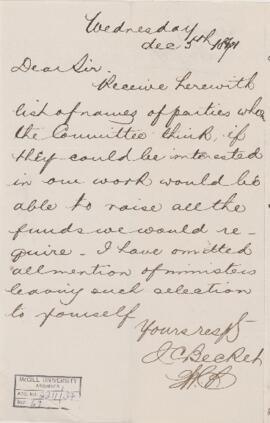 Wednesday
Dec 5th
Dear Sir.
Receive herewith
list of names of parties who
the Committee think, if
they could be interested
in our work would be
able to raise all the
funds we would re-
quire - I have omitted
all mention of ministers
leaving such selection
to yourself
Yours respy
J C Becket
McGILL UNIVERSITY
ARCHIVES
ACC. NO.
REF.